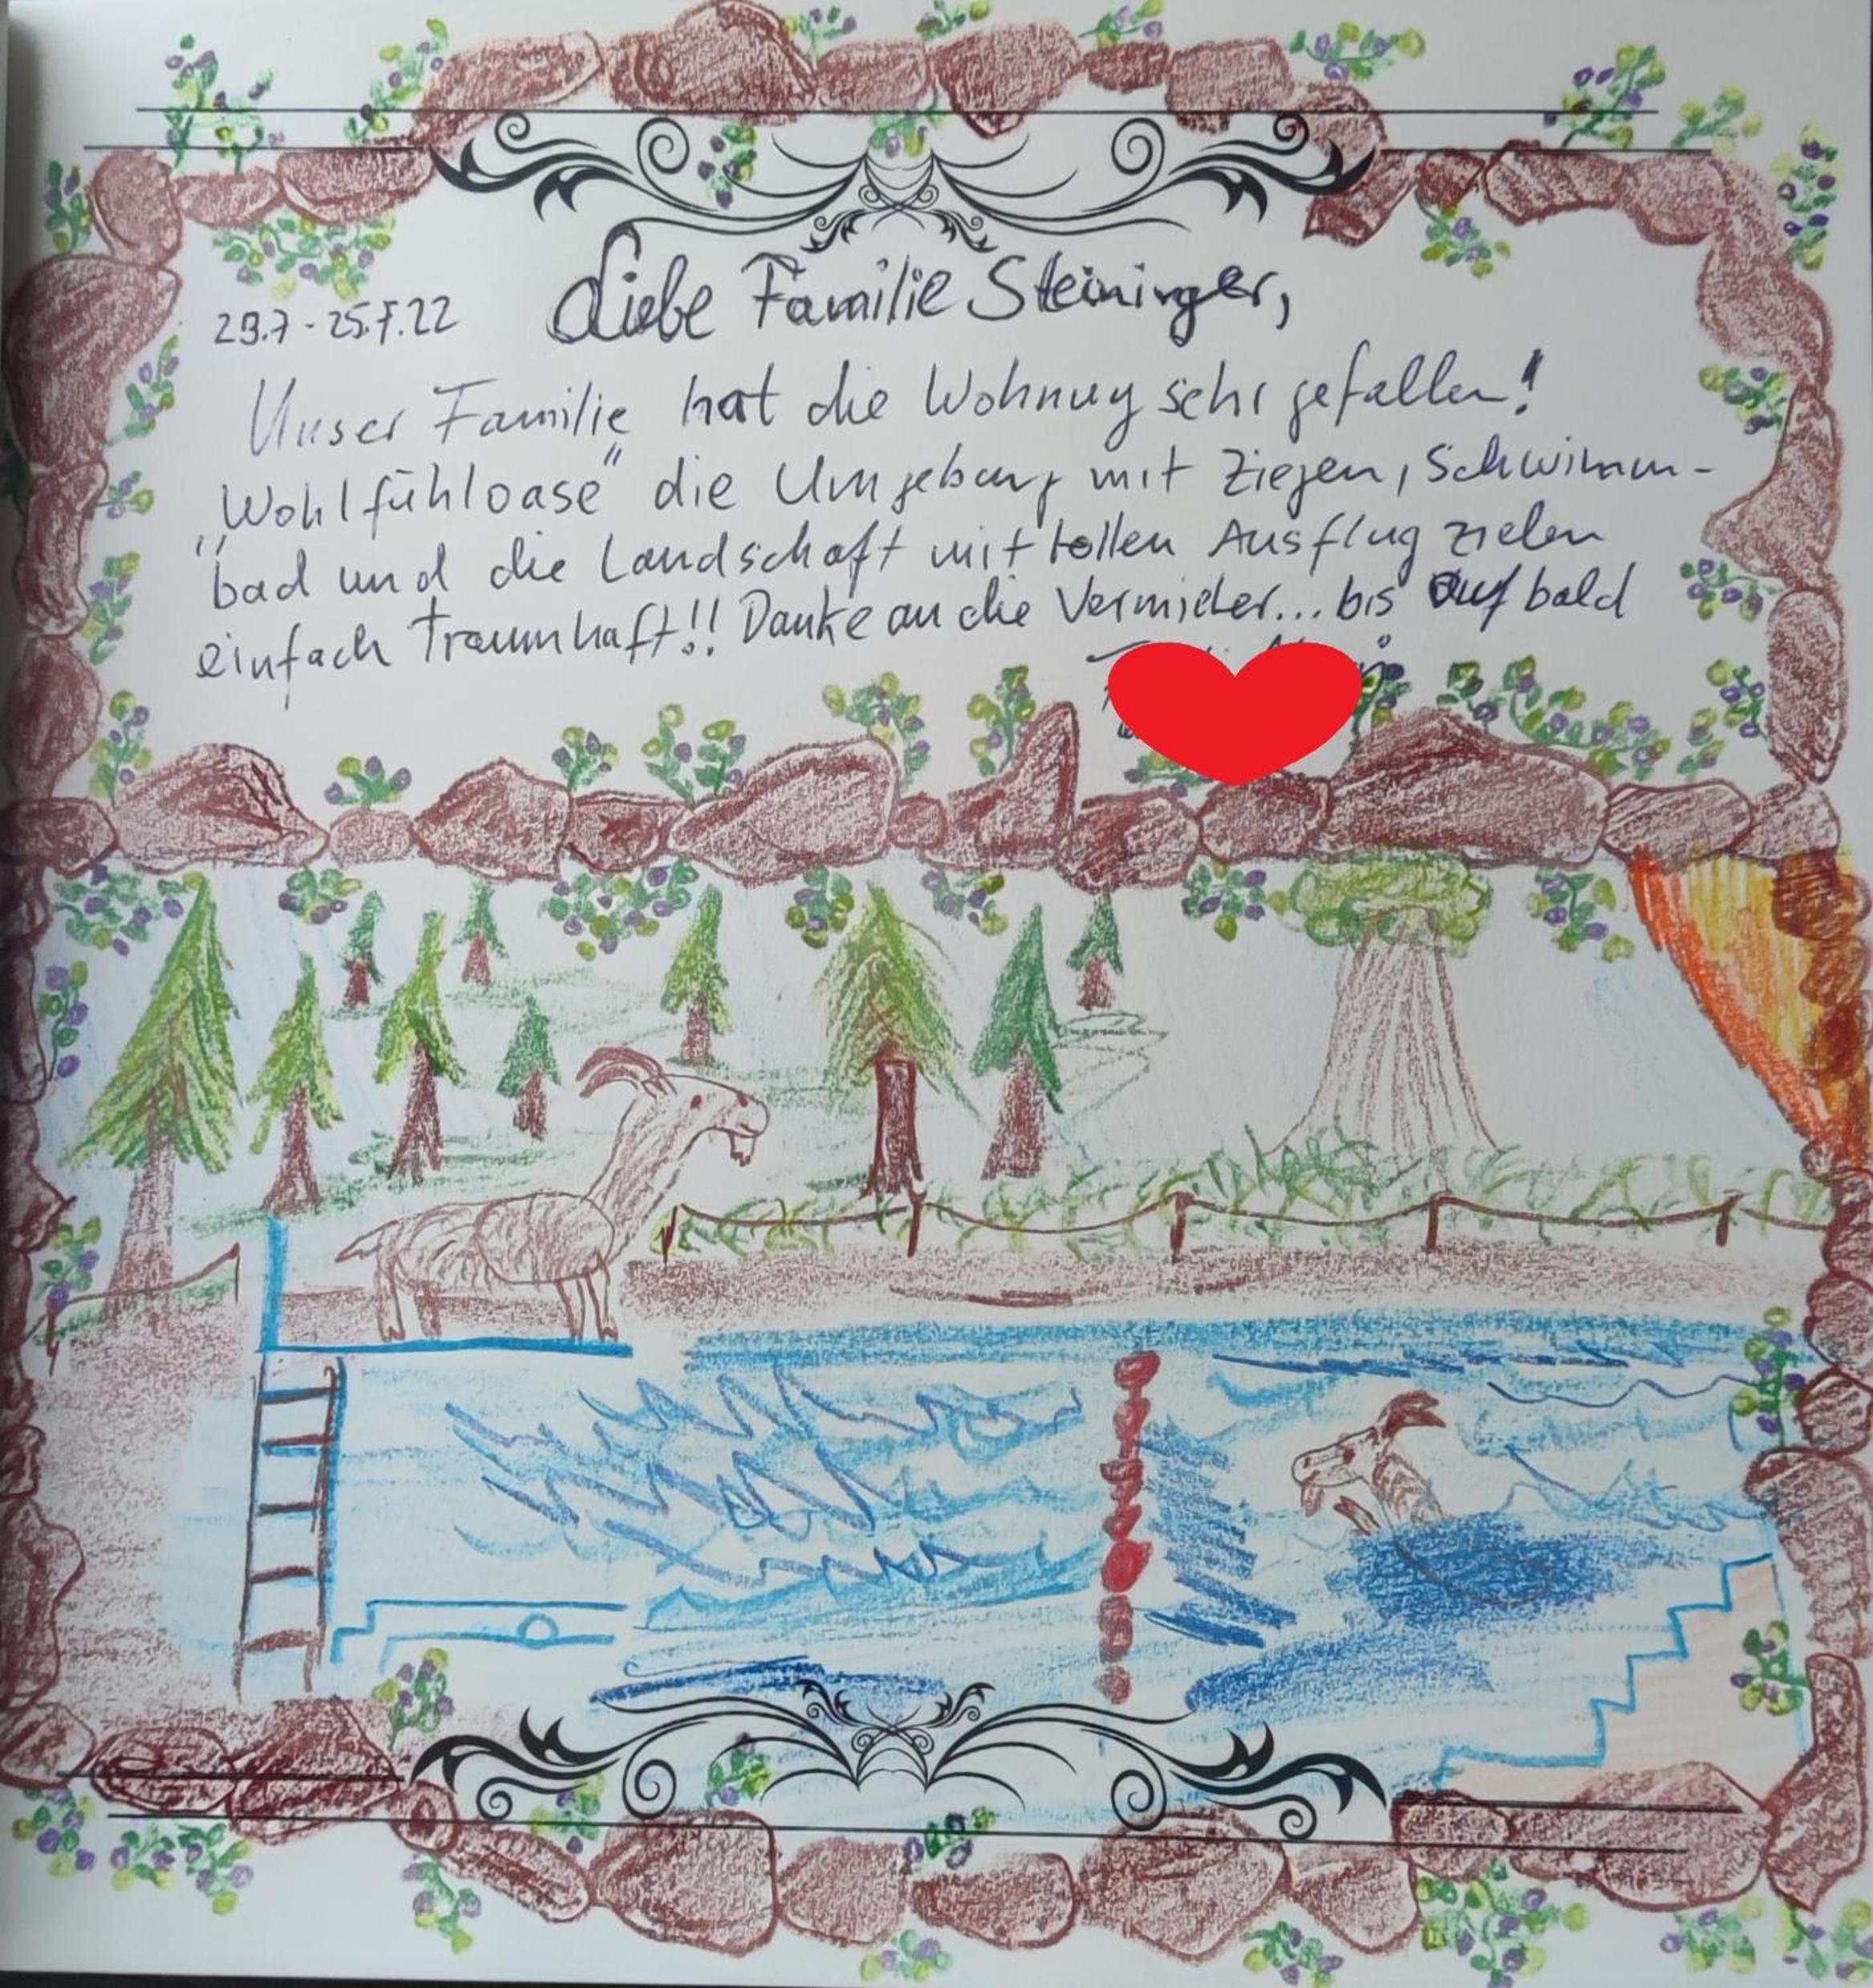 29.7 - 25.7.22 Liebe Familie Steininger,
Unser Familie hat die Wohnung sehr gefallen!
„Wohlfühloase" die Umgebung mit Ziegen, Schwimm-
bad und die Landschaft mit tollen Ausflug zielen
einfach Traumhaft!! Danke an die Vermieter... bis auf bald